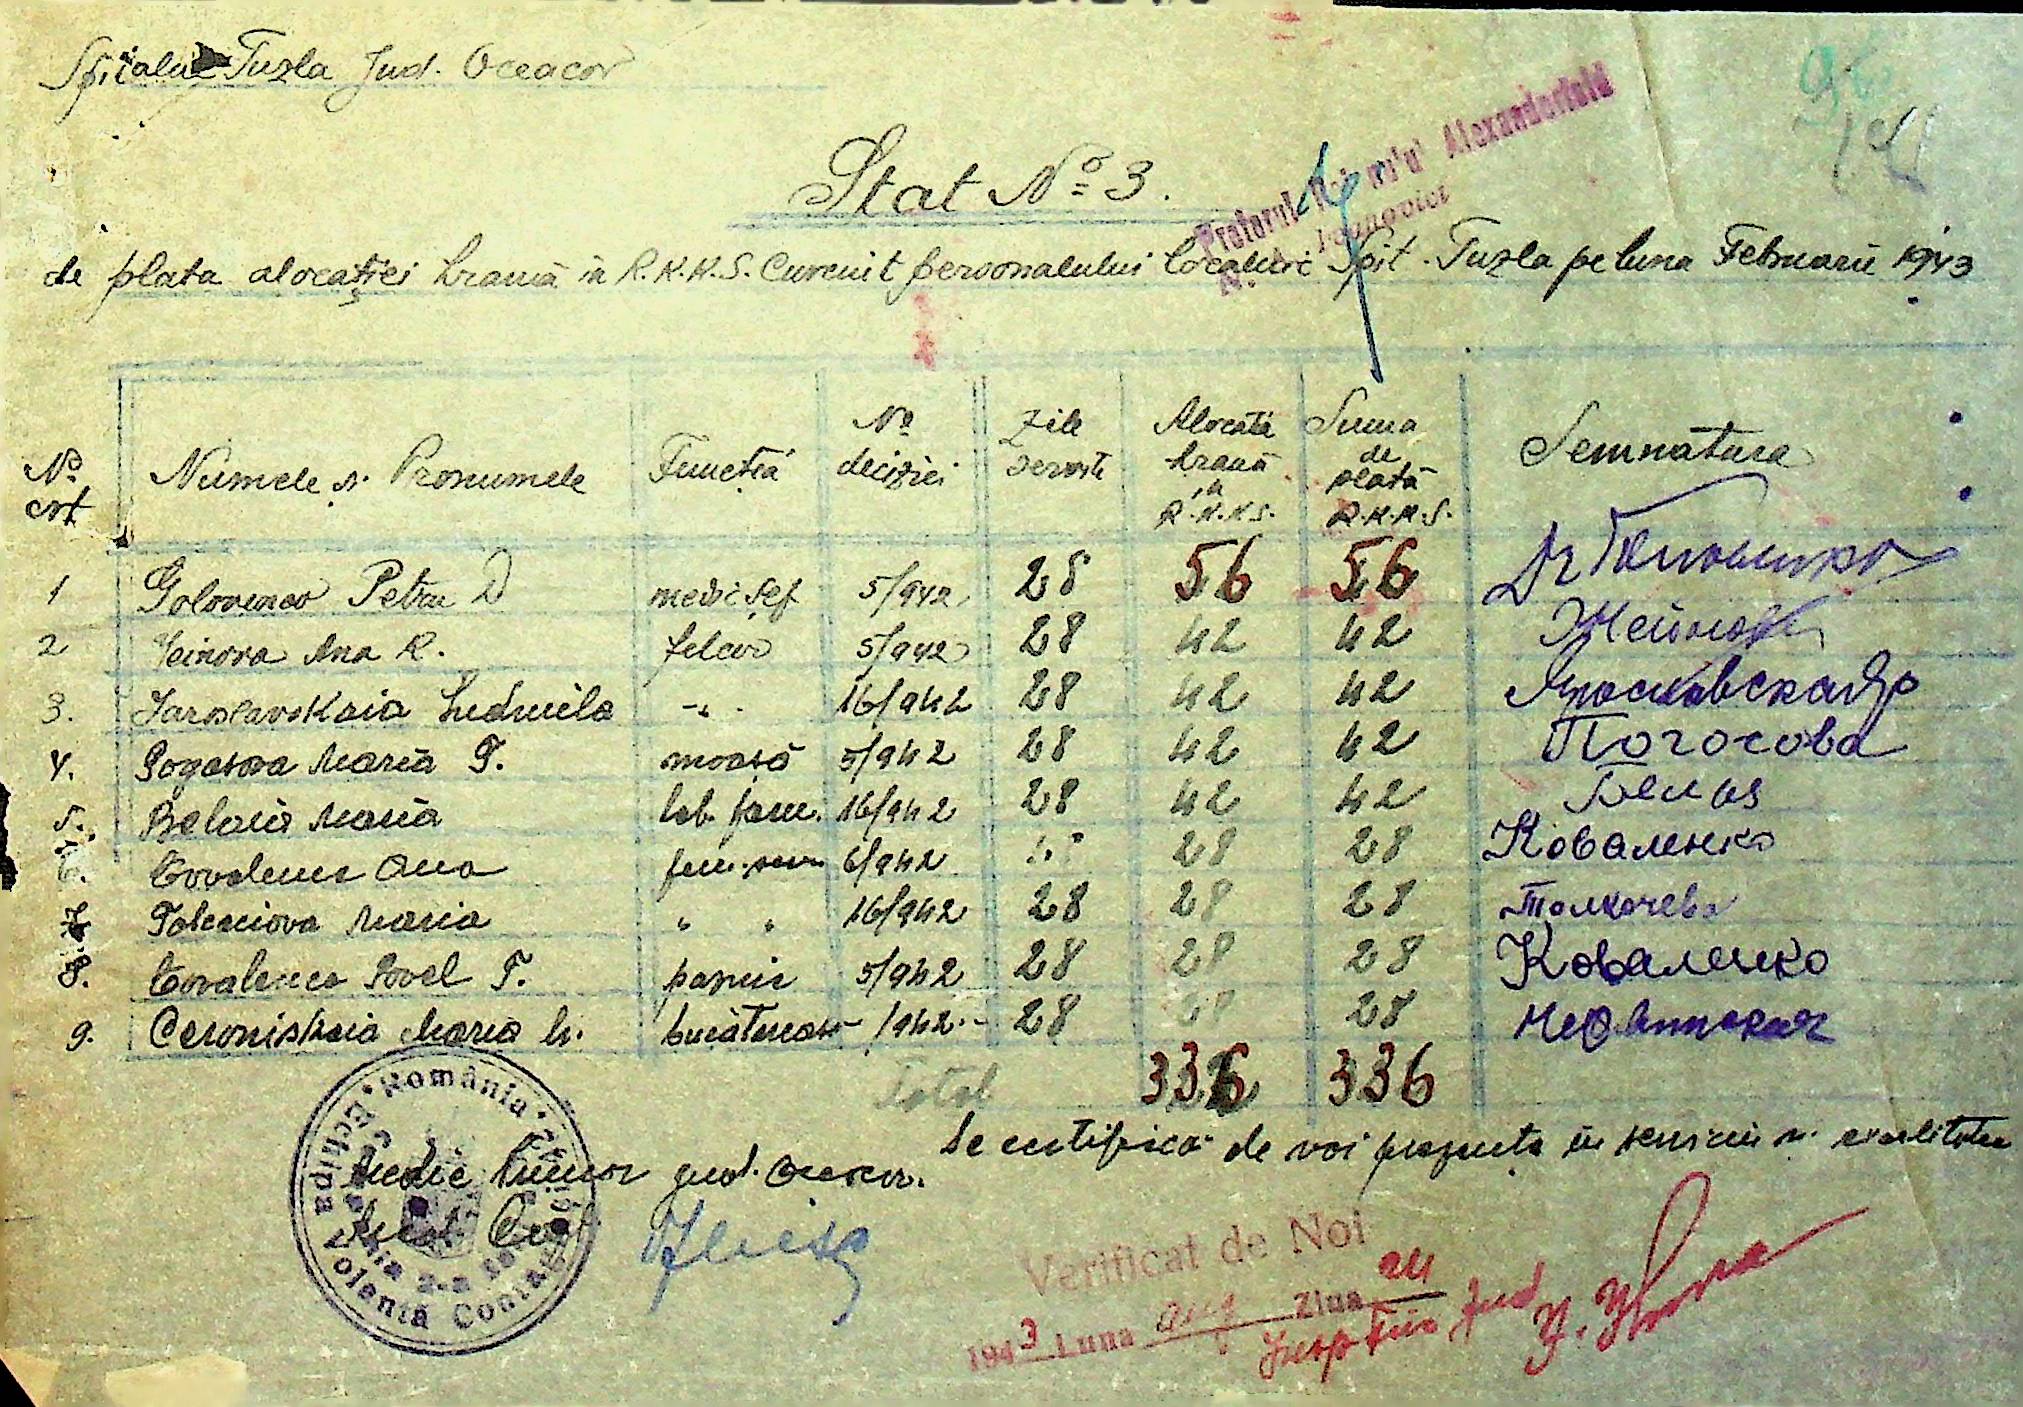 Spitalul Tuzla Jud. Oceacov
Stat No 3.
Pretorul Alexanderfeld
de plata alocației hrană in R.K.K.S. Cuvenit personalului localnic Spit. Tuzla pe luna Februarie 1943
No crt Numele si Pronumele Funcția No deciziei Zile Alocatia hrană in R.K.K.S. Suma de plată R.K.K.S. Semnatura
1 Golovenco Petru D medic sef 5/942 28 56 56 Dr
2 Ana R. felcer 5/942 28 42 42
3. Iaroslavskaia Ludmila -"- 16/942 28 42 42 Ярославская
4. Pogosova Maria T. moasă 5/942 28 42 42 Погосова
5. Belaia Maria 16/942 28 42 42 Белая
6. Covalenco Ana fem. serv 6/942 28 28 Коваленко
7 Tolcaciova Maria " " 16/942 28 28 28 Толкачева
8. Covalenco Pavel T. paznic 5/942 28 28 28 Коваленко
9. Maria bucătereasă - /942.- 28 28 28
Total 336 336
Se certifică de noi prezența in serviciu si realitatea
Medic Primar jud. Oceacov.
România
Echipa Volantă
Verificat de Noi
1943 Luna aug Ziua 24
Insp Fin Jud